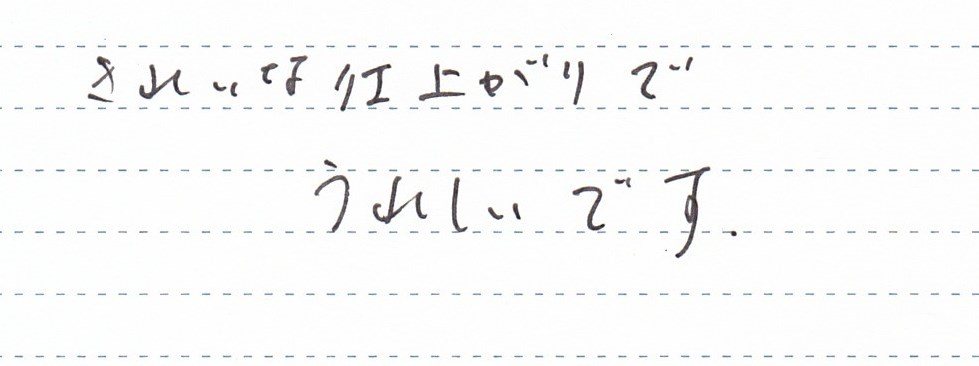 きれいな仕上がりで
うれしいです.